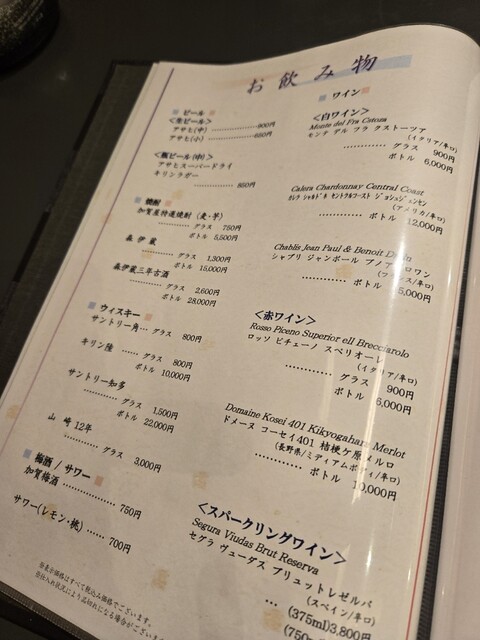 お飲み物
ビール
<生ビール>
アサヒ(中) ……………… 900円
アサヒ(小) ……………… 650円
<瓶ビール(中)>
アサヒスーパードライ
キリンラガー
……………… 850円
焼酎
加賀屋特選焼酎 (麦・芋)
……… グラス 750円
ボトル 5,500円
森伊蔵
……… グラス 1,300円
ボトル 15,000円
森伊蔵三年古酒
……… グラス 2,600円
ボトル 28,000円
ウィスキー
サントリー角… グラス 800円
キリン陸 …… グラス 800円
ボトル 10,000円
サントリー知多
……… グラス 1,500円
ボトル 22,000円
山崎12年
……… グラス 3,000円
梅酒 / サワー
加賀梅酒 ……………… 750円
サワー(レモン・桃) …… 700円
各表示価格はすべて税込み価格でございます。
ワイン
<白ワイン>
Monte del Fra Custoza
モンテ デル フラ クストーツァ
(イタリア/辛口)
………… グラス 900円
ボトル 6,000円
Calera Chardonnay Central Coast
カレラ シャルドネ セントラルコースト ジョシュジェンセン
(アメリカ/辛口)
………… ボトル 12,000円
Chablis Jean Paul & Benoit
シャブリ ジャンポール ブノア ロワン
(フランス/辛口)
………… ボトル 5,000円
<赤ワイン>
Rosso Piceno Superior ell Brecciarolo
ロッソ ピチェーノ スペリオーレ
(イタリア/辛口)
………… グラス 900円
ボトル 6,000円
Domaine Kosei 401 Kikyogahara Merlot
ドメーヌ コーセイ401 桔梗ケ原メルロ
(長野県/ミディアムボディ/辛口)
………… ボトル 10,000円
<スパークリングワイン>
Segura Viudas Brut Reserva
セグラ ヴューダス ブリュットレゼルバ
(スペイン/辛口)
… (375ml)3,800円
(750